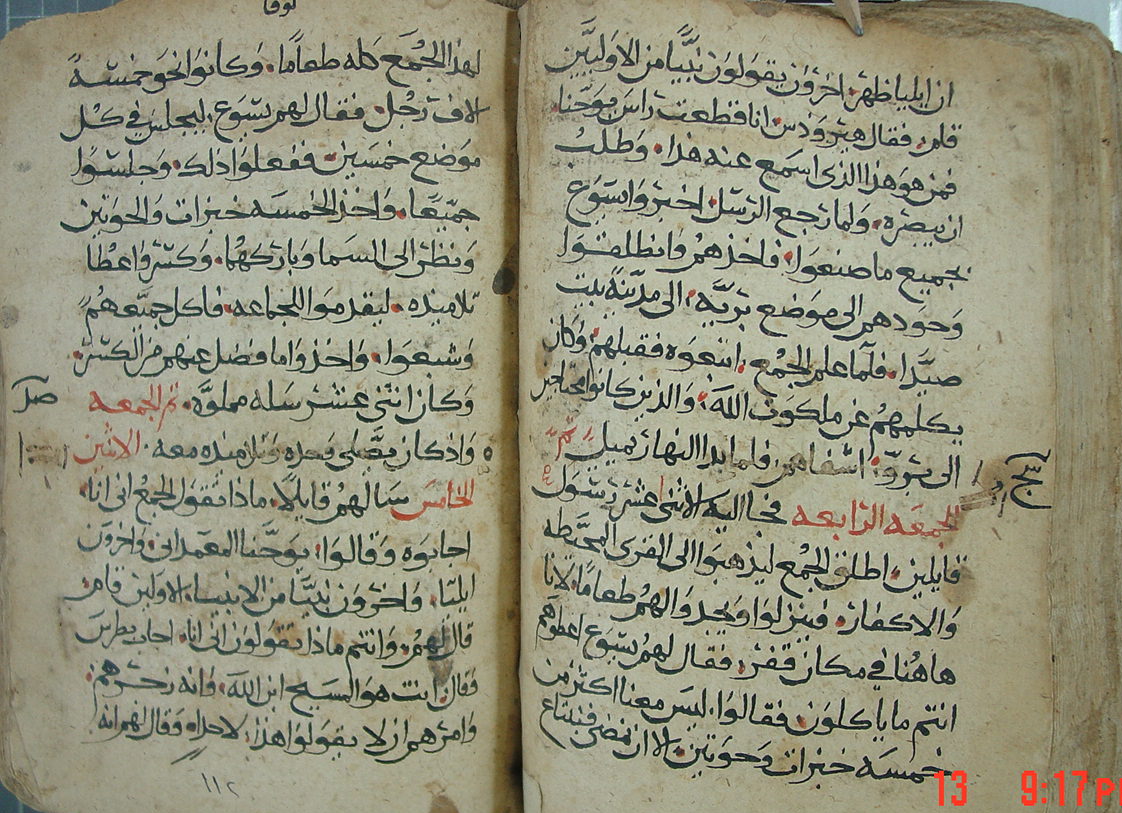 ان ايليا ظهر. اخرون يقولون نبيًا من الاوليين
قام. فقال هيرودس. انا قطعت راس يوحنا.
فمن هو هذا الذى اسمع عنه هذا. وطلب
ان يبصره. ولما رجع الرسل. اخبروا يسوع
بجميع ما صنعوا. فاخذهم وانطلقوا
وحودهم الى موضع بريّه. الى مدينة بيت
صيدا. فلما علم الجمع. اتبعوه فقبلهم. وكان
يكلمهم عن ملكوت الله. والذين كانوا محتاجين
الى بروّ. اشفاهم. فلما بدا النهار يميل تم
الجمعه الرابعه فجا اليه الاثنى عشر رسول
قايلين. اطلق الجمع ليذهبوا الى القرى المحيطه
والاكفار. فينزلوا ويجدوا لهم طعاما. لانا
هاهنا في مكان قفر. فقال لهم يسوع اعطوهم
انتم ما ياكلون. فقالوا. ليس معنا اكثر من
خمسه خبزات وحوتين. الا ان نمضى فنبتاع
لوقا
لهذا الجمع كله طعامًا. وكانوا نحو خمسة
الاف رجل. فقال لهم يسوع. ليجلس في كل
موضع خمسين. ففعلوا ذلك. وجلسوا
جميعًا. واخذ الخمسه خبزات والحوتين
ونظر الى السما وباركهما. وكسر واعطا
تلاميذه. ليقدموا للجماعه. فاكل جميعهم
وشبعوا. واخذوا ما فضل عنهم من الكسر.
وكان اثنى عشر سله مملوّه. تم الجمعه
واذ كان يصلى وحده وتلاميذه معه. الاثنين
الخامس سالهم قايلا. ماذا تقول الجمع انى انا.
اجابوه وقالوا. يوحنا المعمدانى. واخرون
ايليا. واخرون نبيًا من الانبيا. الاولين قام.
قال لهم. وانتم ماذا تقولون انى انا. اجاب بطرس
وقال. انت هو المسيح ابن الله. وانه زجرهم.
وامرهم ان لا يقولوا هذا. لاحد. وقال لهم انه
١١٢
13 9:17 P